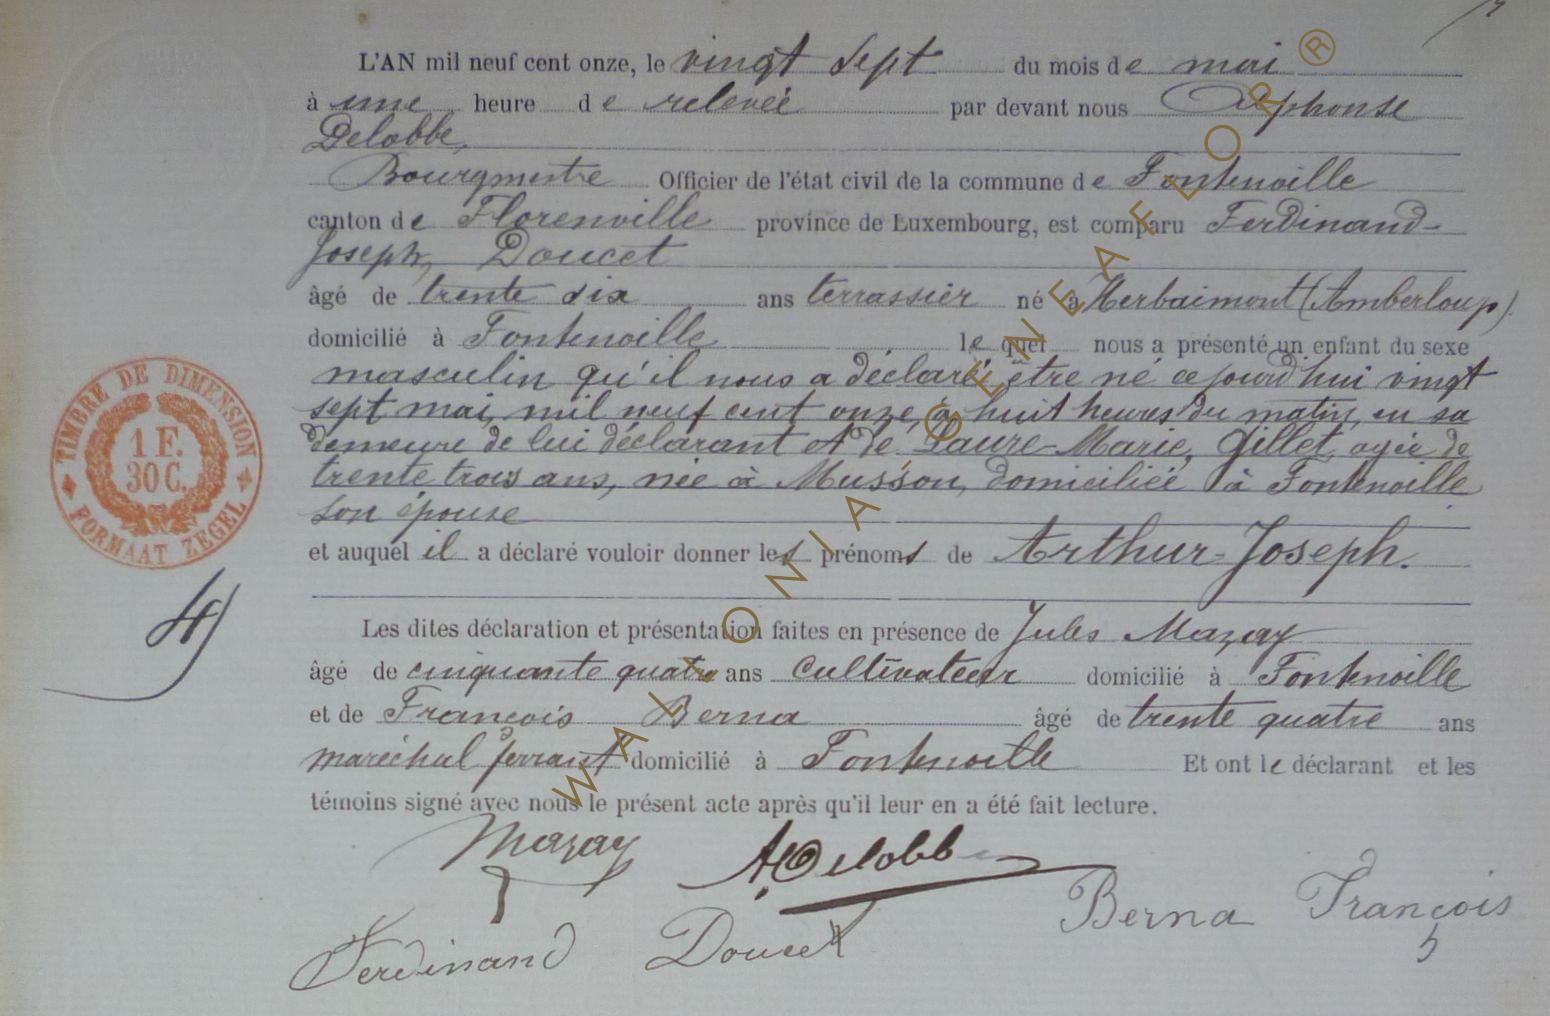 L'AN mil neuf cent onze, le vingt sept du mois de mai
à une heure de relevée par devant nous Alphonse
Delobbe,
Bourgmestre Officier de l'état civil de la commune de Fontenoille
canton de Florenville province de Luxembourg, est comparu Ferdinand-
Joseph, Doucet
âgé de trente six ans terrassier né à Herbaimont (Amberloup)
domicilié à Fontenoille lequel nous a présenté un enfant du sexe
masculin qu'il nous a déclaré être né cejourd'hui vingt
sept mai, mil neuf cent onze, à huit heures du matin, en sa
demeure de lui déclarant et de Laure-Marie, Gillet, agée de
trente trois ans, née à Musson, domiciliée à Fontenoille
son épouse
et auquel il a déclaré vouloir donner les prénoms de Arthur-Joseph.
Les dites déclaration et présentation faites en présence de Jules Mazay
âgé de cinquante quatre ans cultivateur domicilié à Fontenoille
et de François Berna âgé de trente quatre ans
maréchal ferrant domicilié à Fontenoille Et ont le déclarant et les
témoins signé avec nous le présent acte après qu'il leur en a été fait lecture.
Mazay A. Delobbe
Berna François
Ferdinand Doucet
TIMBRE DE DIMENSION
1 F.
30 C.
FORMAAT ZEGEL
WALLONIA GENEAFLOR ®